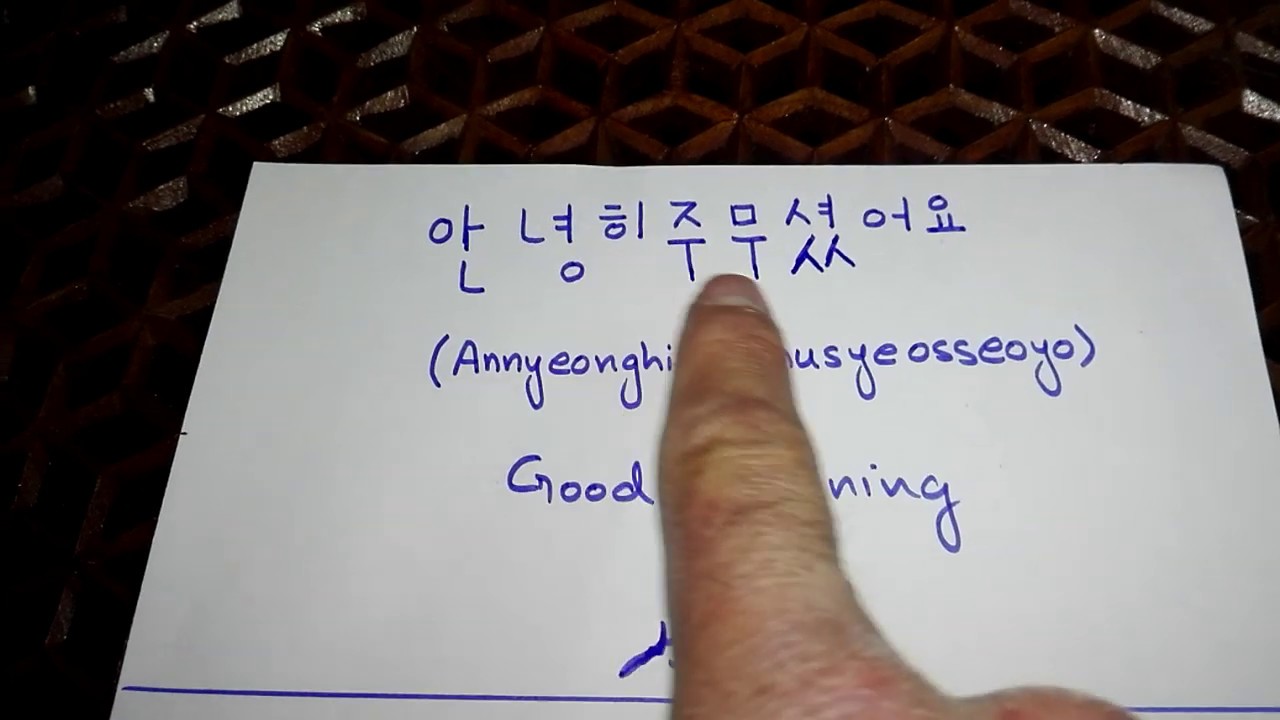 안녕히주무셨어요
(Annyeonghi usyeosseoyo)
Good ning